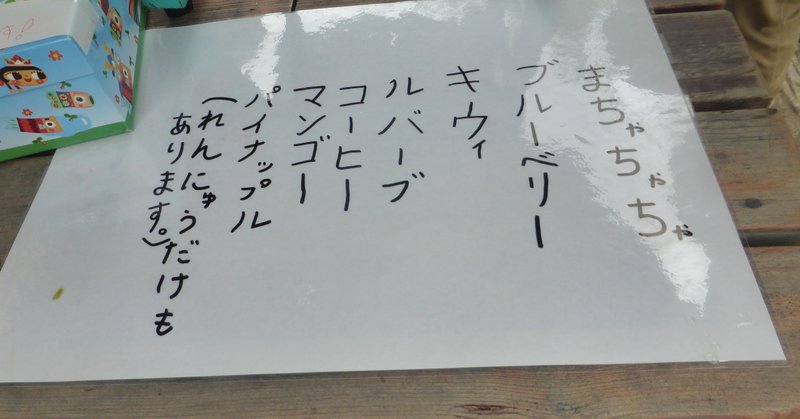 まちゃちゃちゃ
ブルーベリー
キウィ
ルバーブ
コーヒー
マンゴー
パイナップル
(れんにゅうだけも
あります。)